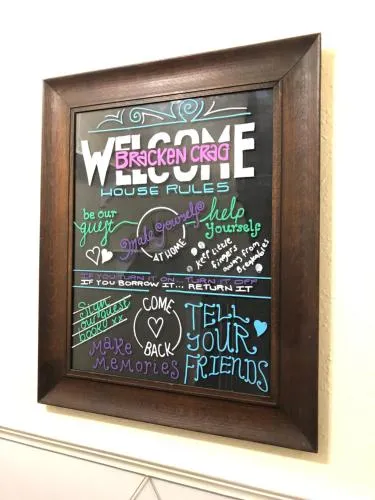 WELCOME
BRACKEN CRAG
HOUSE RULES
be our
guest
Make Yourself
AT HOME
help
yourself
keep little
fingers
away from
Breakables
IF YOU TURN IT ON... TURN IT OFF
IF YOU BORROW IT... RETURN IT
Sign
our guest
book xx
Make
Memories
COME
BACK
TELL
YOUR
FRIENDS